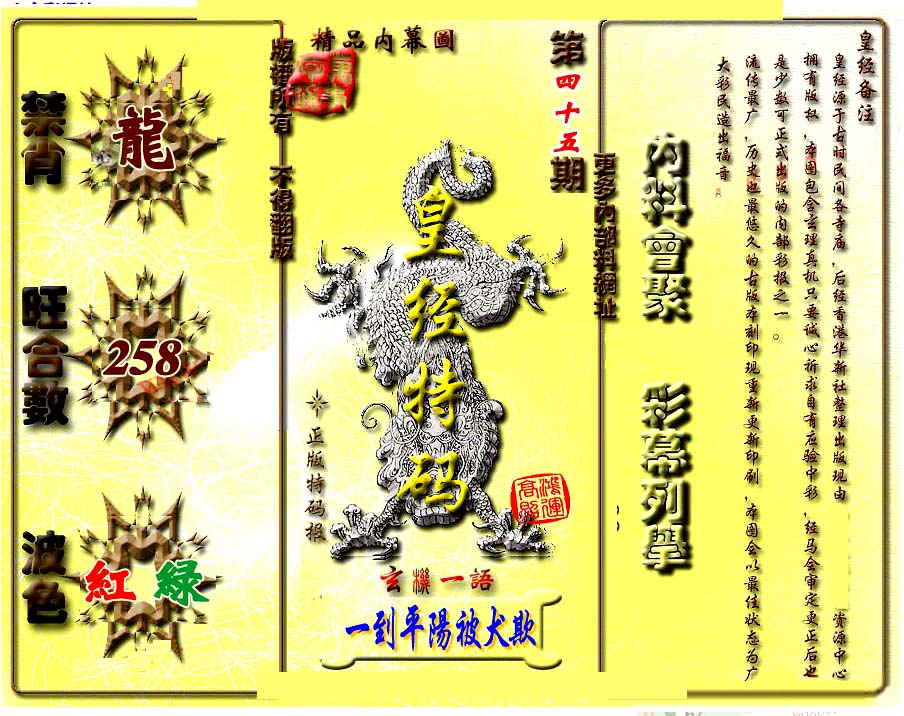 精品内幕圖
第四十五期
版權所有 不得翻版
更多內部料網址
禁肖
龍
旺合數
258
波色
紅 綠
皇经特码
正版特码报
鴻運高照
玄機一語
一到平陽被犬欺
內料會聚 彩幕列舉
皇经备注
皇经源于古时民间各寺庙，后经香港华新社整理出版现由 资源中心
拥有版权，本图包含玄理真机只要诚心祈求自有应验中彩，经马会审定更正后也
是少数可正式出版的内部彩报之一。
流传最广，历史也最悠久的古版本刻印现重新更新印刷，本图会以最佳状态为广
大彩民造出福音